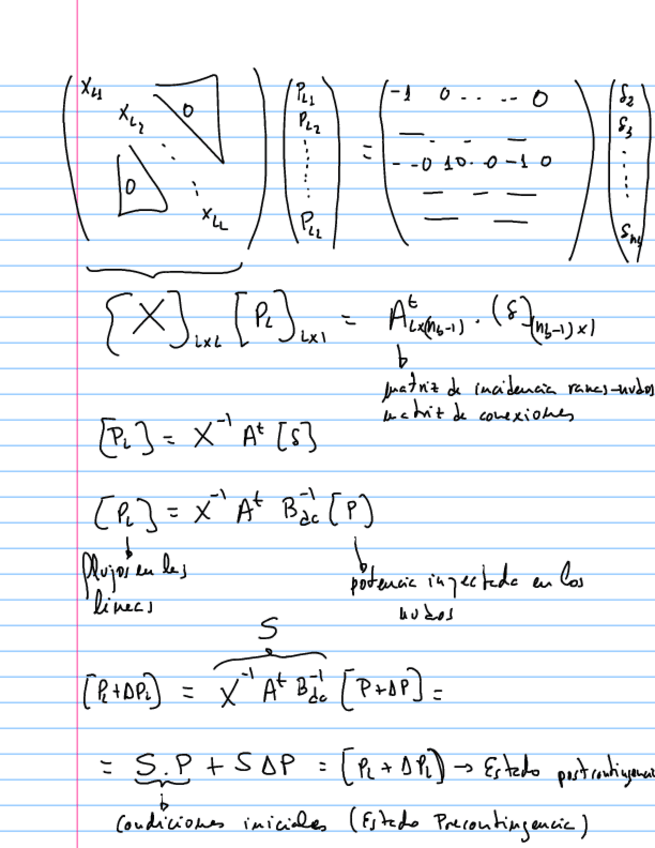 ( X_L1 0 X_L2 ⋱ 0 X_LL ) ( P_L1 P_L2 ⋮ P_LL ) = ( -1 0 .. -- 0 / - -0 10. 0 -1 0 ) ( δ_2 δ_3 ⋮ δ_nb )
[X]_LxL [P_L]_Lx1 = A^t_Lx(n_b-1) . (δ)_(n_b-1)x1
matriz de incidencia ramas-nudos
matriz de conexiones
[P_L] = X^-1 A^t [δ]
[P_L] = X^-1 A^t B_dc^-1 [P]
flujos en las líneas
potencia inyectada en los nudos
S
[P_L+ΔP_L] = X^-1 A^t B_dc^-1 [P+ΔP] =
= S.P + SΔP = [P_L + ΔP_L] → Estado postcontingencia
Condiciones iniciales (Estado Precontingencia)